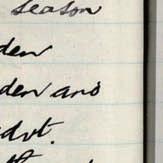 season
den
den and
advt.